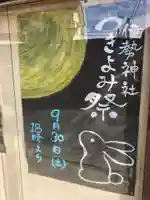 伊勢神社
つきよみ祭
9月30日(土)
18時より